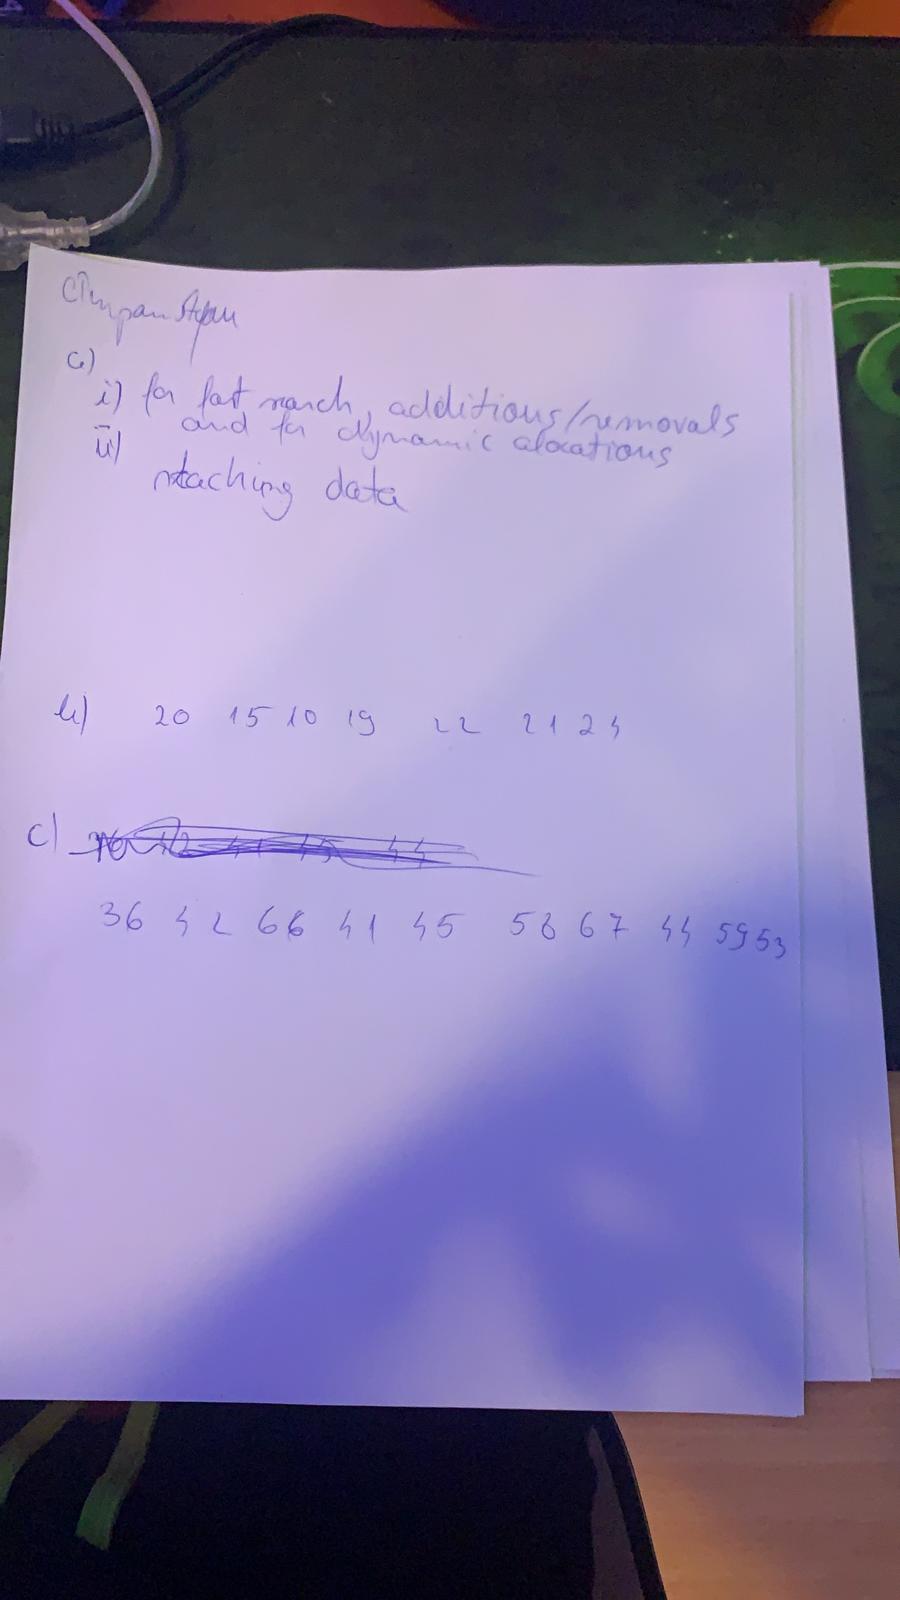 a)
i) for fast search, additions/removals
and for dynamic alocations
ii)
staching data
b) 20 15 10 19 22 21 24
c)
36 42 66 41 45 58 67 44 59 53